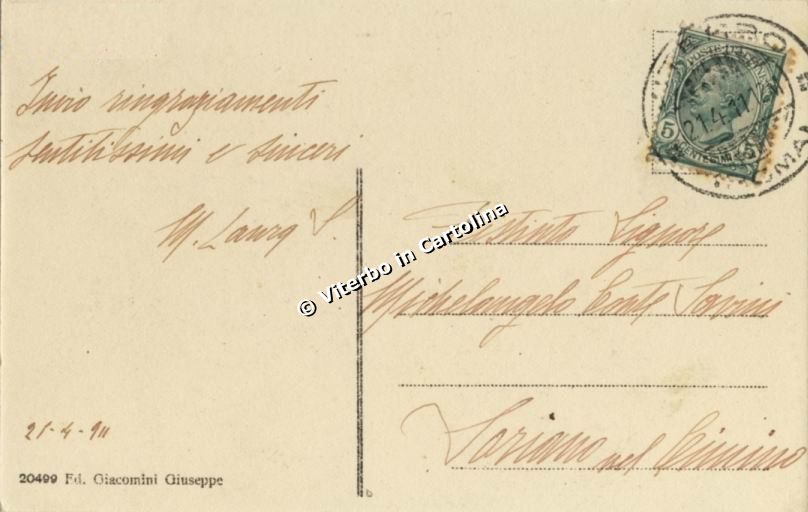 Invio ringraziamenti
sentitissimi e sinceri
M. Laura S.
21-4-911
20499 Ed. Giacomini Giuseppe
POSTE ITALIANE
5 CENTESIMI 5
VITERBO
21.4.11
ROMA
© Viterbo in Cartolina
Distinto Signore
Michelangelo Conte
Soriano nel Cimino